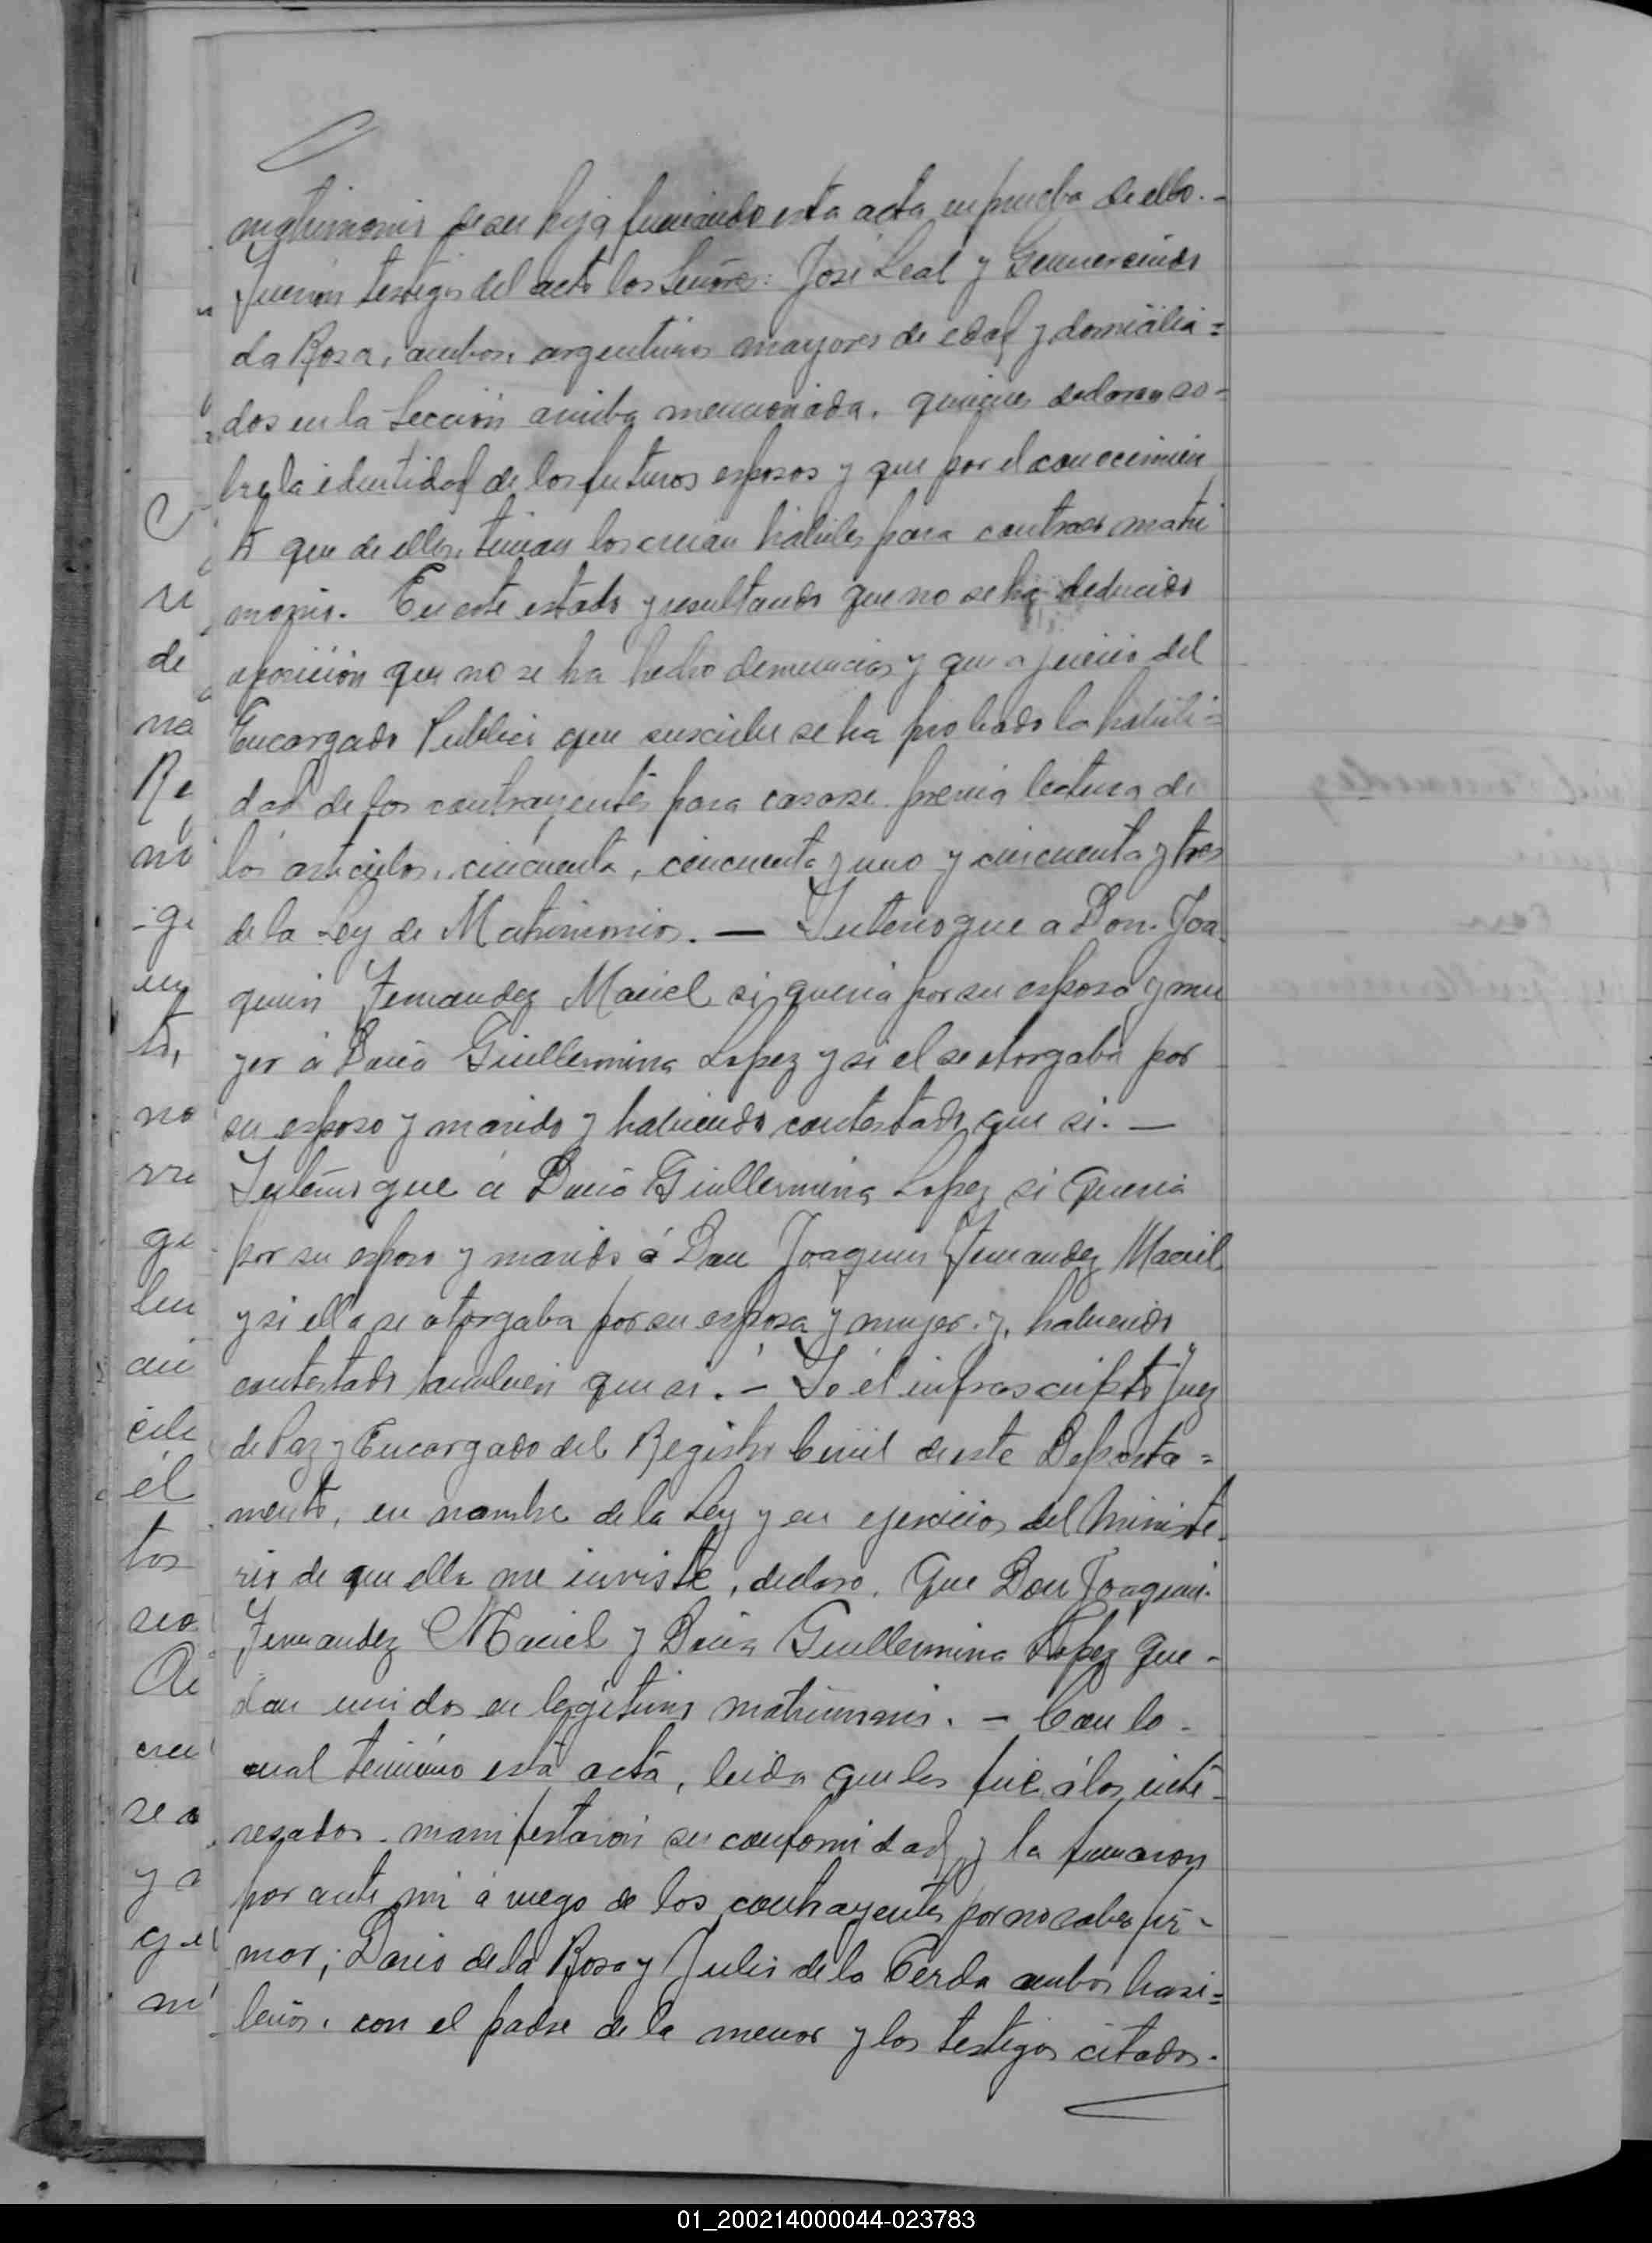 matrimonio de su hija firmando esta acta en prueba de ello.-
Fueron testigos del acto los Señores: José Leal y Gumercindo
da Rosa, ambos, argentinos mayores de edad y domicilia=
dos en la Sección arriba mencionada. quienes declaran so-
bre la identidad de los futuros esposos y que por el conocimien
to que de ellos, tenian los creian hábiles para contraer matri
monio. En este estado y resultando que no se ha deducido
oposición que no se ha hecho denuncias y que a juicio del
Encargado Publico que suscribe se ha probado la habili=
dad de los contrayentes para casarse previa lectura de
los articulos, cincuenta, cincuenta y uno y cincuenta y tres
de la Ley de Matrimonios. — Interrogue a Don. Joa
quin Fernandez Maciel si queria por su esposa y mu
jer á Doña Guillermina Lopez y si el se otorgaba por
su esposo y marido y habiendo contestado que si. —
Interrogue á Doña Guillermina Lopez si queria
por su esposo y marido á Don Joaquin Fernandez Maciel
y si ella se otorgaba por su esposa y mujer. y, habiendo
contestado tambien que si. - Yo el infrascripto Juez
de Paz y Encargado del Registro Civil de este Departa=
mento, en nombre de la Ley y en ejercicios del Ministe
rio de que ella me inviste, declaro. Que Don Joaquin.
Fernandez Maciel y Doña Guillermina Lopez que-
dan unidos en legitimo matrimonio. - Con lo-
cual termino esta acta, leida que les fué á los inte-
resados. manifestaron su conformidad y la firmaron
por ante mi á ruego de los contrayentes por no saber fir-
mar; Dario de la Rosa y Julio de la Cerda ambos brasi=
leños, con el padre de la menor y los testigos citados.
01_200214000044-023783